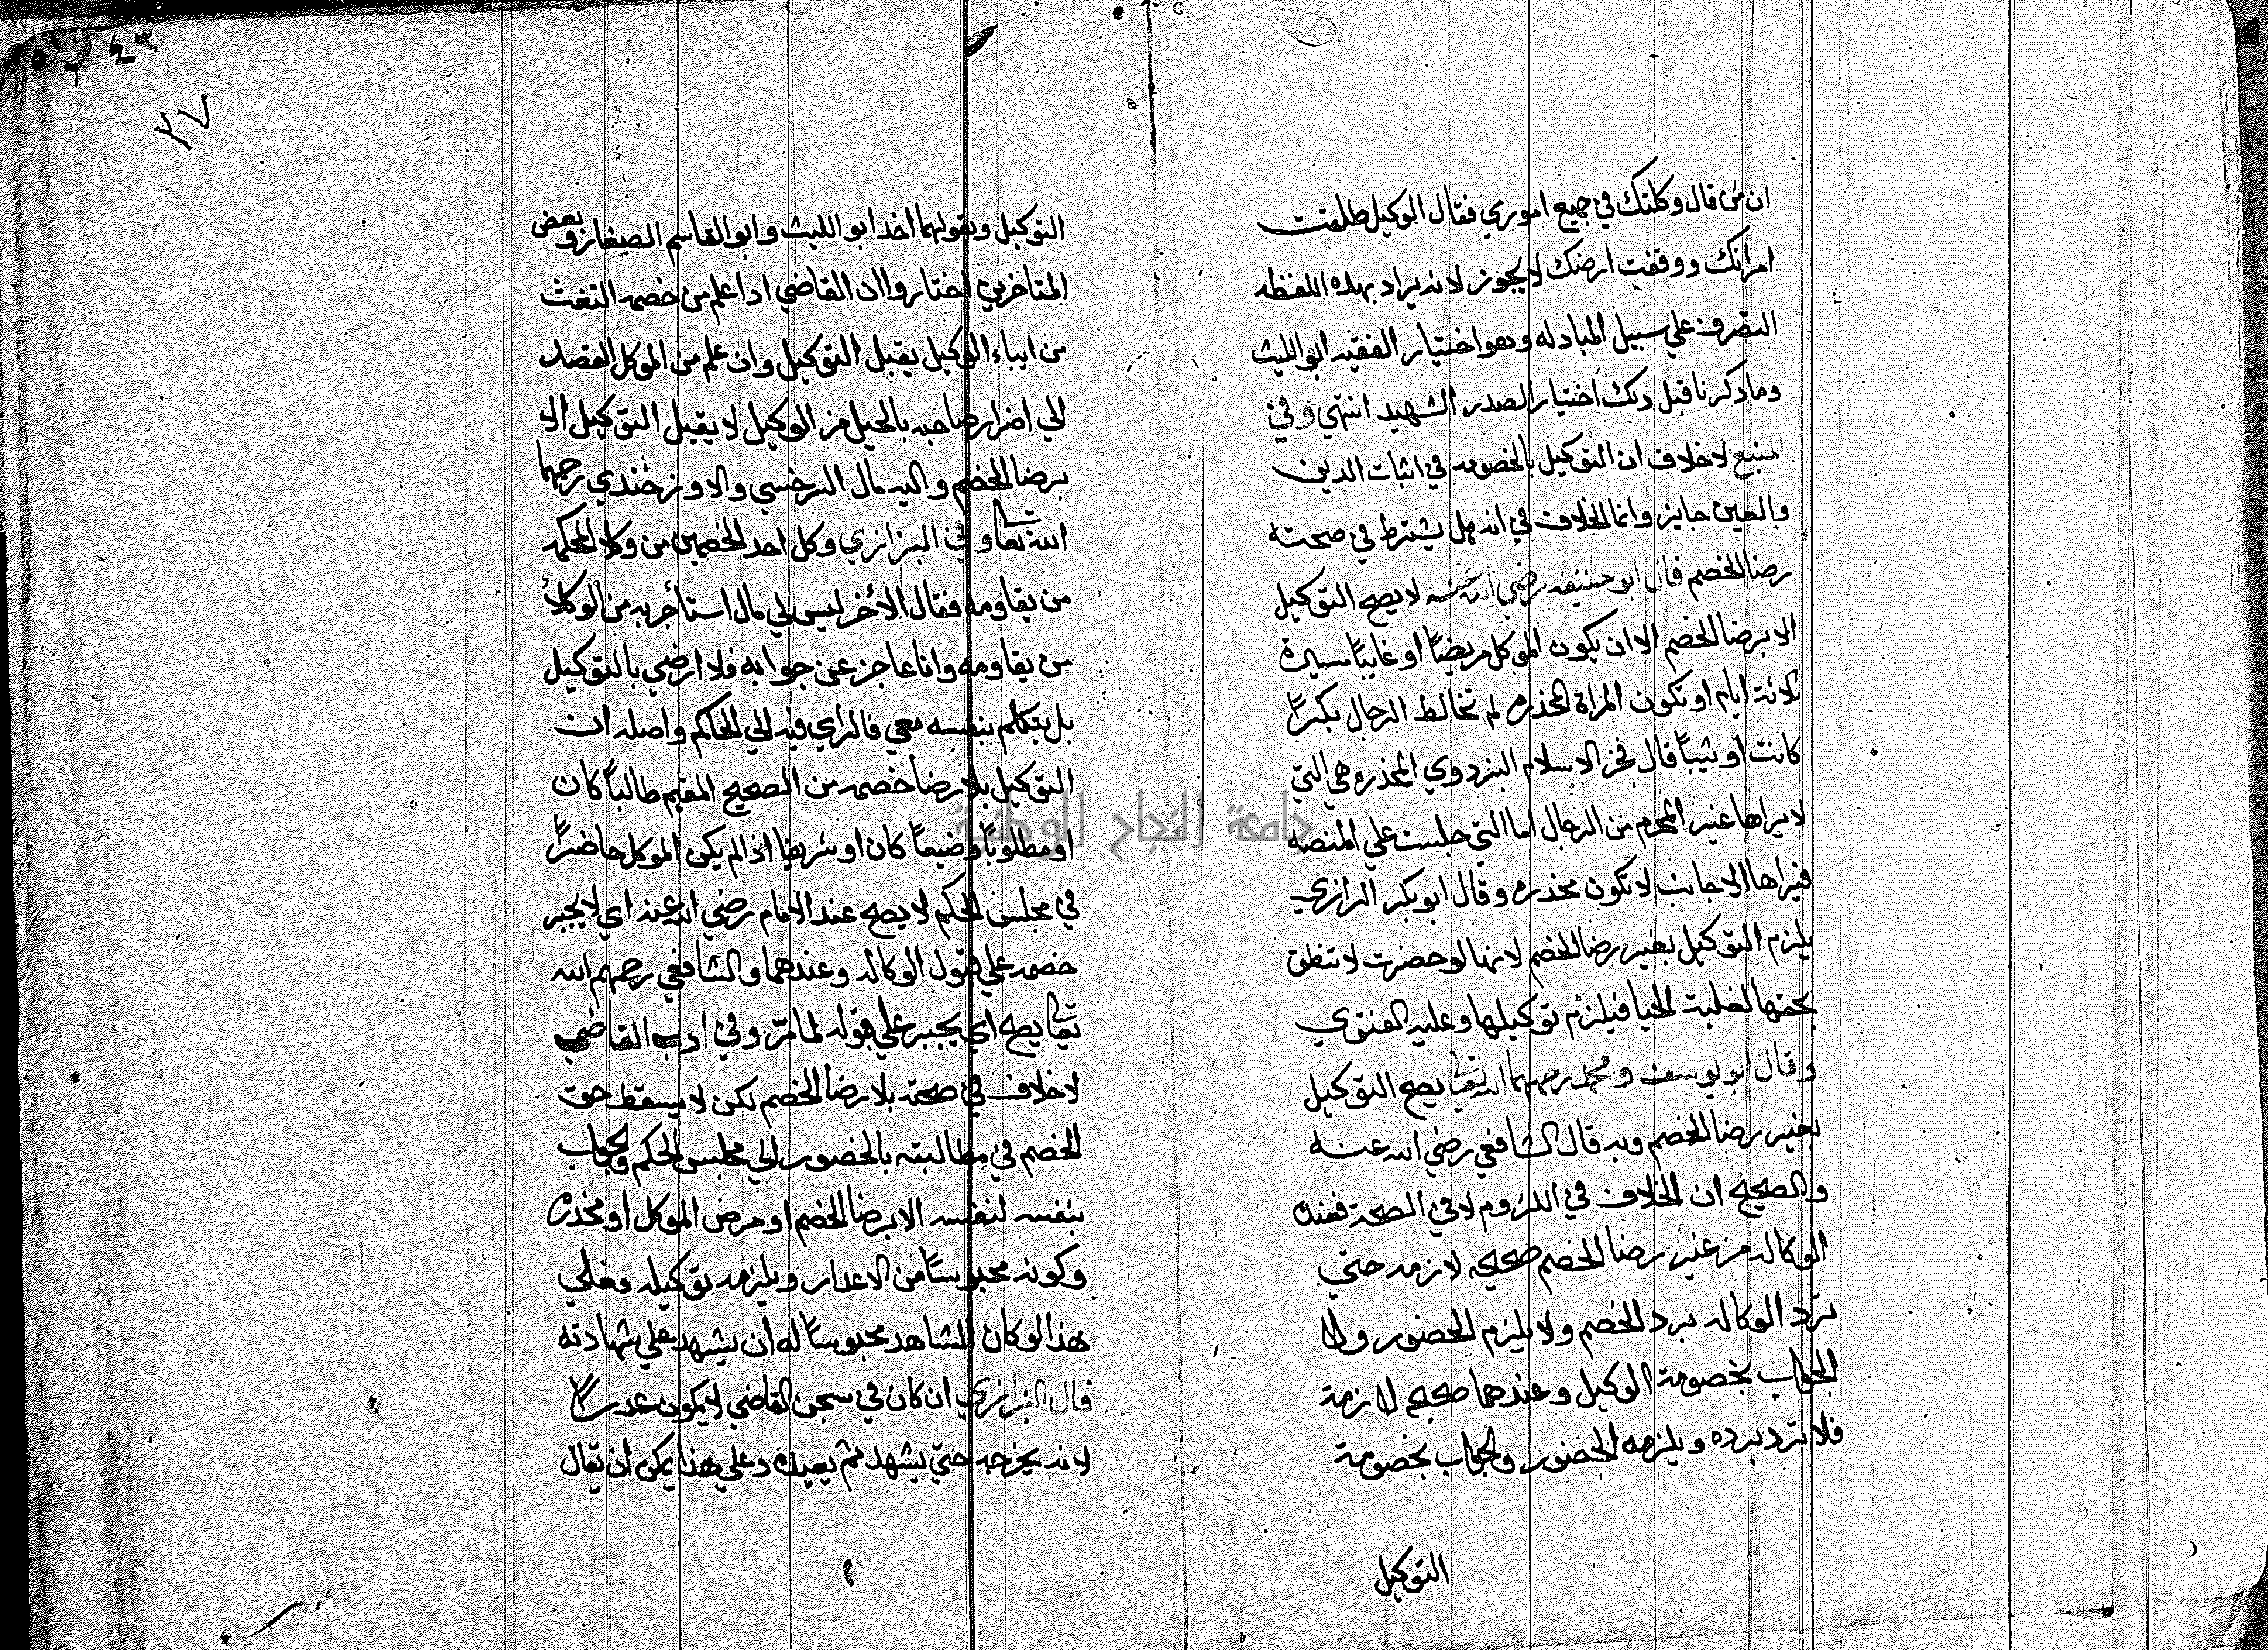 ان من قال وكلتك في جميع اموري فقال الوكيل طلقت
امراتك ووقفت ارضك لا يجوز لانه يراد بهذه اللفظه
التصرف علي سبيل المبادله وهو اختيار الفقيه ابو الليث
وما ذكرنا قبل ذلك اختيار الصدر الشهيد انتهي وفي
المنبع لا خلاف ان التوكيل بالخصومه في اثبات الدين
والعين جايز وانما الخلاف في انه هل يشترط في صحته
رضا الخصم قال ابو حنيفه رضي الله عنه لا يصح التوكيل
الا برضا الخصم الا ان يكون الموكل مريضًا او غايبًا مسيرة
ثلاثة ايام او تكون المراة المخدره لم تخالط الرجال بكرًا
كانت او ثيبًا قال فخر الاسلام البزدوي المخدره هي التي
لا يراها غير المحرم من الرجال اما التي جلست علي المنصه
فيراها الاجانب لا تكون مخدره وقال ابو بكر الرازي
يلزم التوكيل بغير رضا الخصم لانها لو حضرت لا تنطق
بحقها لغلبة الحيا فيلزم توكيلها وعليه الفتوي
وقال ابو يوسف ومحمد رحمهما الله تعالي يصح التوكيل
بغير رضا الخصم وبه قال الشافعي رضي الله عنه
والصحيح ان الخلاف في اللزوم لا في الصحة فعنده
الوكاله من غير رضا الخصم صحيحه لازمه حتي
ترد الوكاله برد الخصم ولا يلزم الحضور ولا
الجواب بخصومة الوكيل وعندهما صحيح لازمة
فلا ترد برده ويلزمه الحضور والجواب بخصومة
التوكيل
٢٧
التوكيل وبقولهما اخذ ابو الليث وابو القاسم الصفار وبعض
المتاخرين اختاروا ان القاضي اذا علم من خصمه التعنت
من اباء الوكيل يقبل التوكيل وان علم من الموكل القصد
الي اضرار صاحبه بالحيل من الوكيل لا يقبل التوكيل الا
برضا الخصم واليه مال السرخسي والاوزجندي رحمهما
الله تعالي وفي البزازي وكل احد الخصمين من وكلا المحكمه
من يقاومه فقال الأخر ليس لي مال استأجر به من الوكلا
من يقاومه وانا عاجز عن جوابه فلا ارضي بالتوكيل
بل يتكلم بنفسه معي فالراي فيه الي الحاكم واصله ان
التوكيل بلا رضا خصمه من الصحيح المقيم طالبًا كان
او مطلوبًا وضيعًا كان او شريفا اذا لم يكن الموكل حاضرًا
في مجلس الحكم لا يصح عند الامام رضي الله عنه اي لا يجبر
خصمه علي قبول الوكاله وعندهما والشافعي رحمهم الله
تعالي يصح اي يجبر علي قبوله لما مرّ وفي ادب القاضي
لا خلاف في صحته بلا رضا الخصم لكن لا يسقط حق
الخصم في مطالبته بالحضور الي مجلس الحكم والجواب
بنفسه لنفسه الا برضا الخصم او مرض الموكل او مخدره
وكونه محبوسًا من الاعذار ويلزمه توكيله فعلي
هذا لو كان الشاهد محبوسًا له ان يشهد علي شهادته
قال البزازي ان كان في سجن القاضي لا يكون عذرًا
لانه يخرجه حتي يشهد ثم يعيده وعلي هذا يمكن ان يقال
جامعة النجاح الوطنية